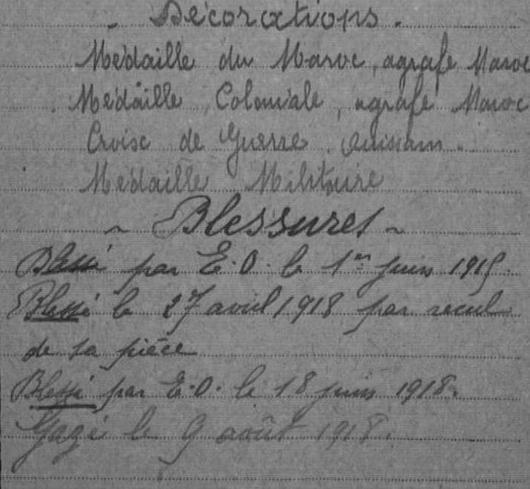 - Décorations -
Médaille du Maroc, agrafe Maroc
Médaille Coloniale, agrafe Maroc
Croix de Guerre.
Médaille Militaire
~ Blessures ~
Blessé par E.O. le 1er juin 1915.
Blessé le 27 avril 1918 par recul
de sa pièce
Blessé par E.O. le 18 juin 1918.
Gazé le 9 août 1918.